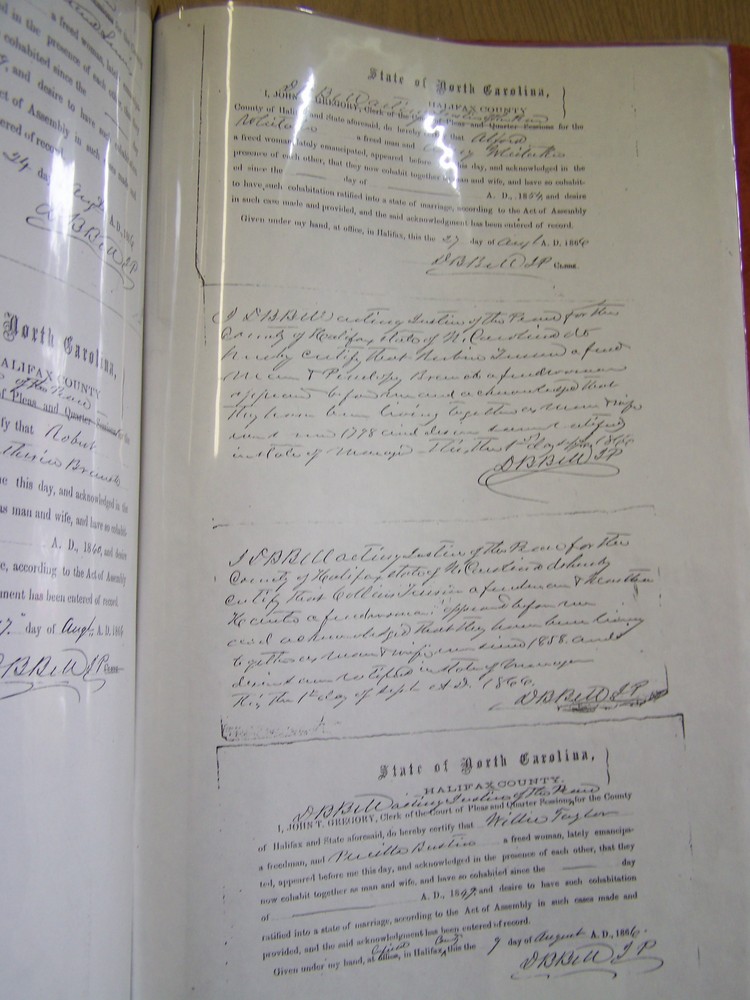 a freed woman, lately
in the presence of each other
cohabited since the
and desire to have such
Act of Assembly in such case made and
entered of record.
24 day Augt A. D., 1866
D B Bell J P
North Carolina,
HALIFAX COUNTY
of the Peace
of Pleas and Quarter Sessions for the
that Robert
Branch
me this day, and acknowledged in the
as man and wife, and have so cohabit-
A. D., 1860, and desire
according to the Act of Assembly
ment has been entered of record
27th day of Augt, A. D. 1866
D B Bell J P CLERK
State of North Carolina,
HALIFAX COUNTY
D B Bell acting Justice of the Peace
I, JOHN T. GREGORY, Clerk of the Court of Pleas and Quarter Sessions for the
County of Halifax and State aforesaid, do hereby certify that Alford
Whitaker a freed man and Whitaker
a freed woman, lately emancipated, appeared before me this day, and acknowledged in the
presence of each other, that they now cohabit together as man and wife, and have so cohabit-
ed since the day of A. D., 1854, and desire
to have such cohabitation ratified into a state of marriage, according to the Act of Assembly
in such case made and provided, and the said acknowledgment has been entered of record.
Given under my hand, at office, in Halifax, this the 27 day of Augt A. D. 1866
D B Bell J P CLERK
I D B Bell acting Justice of the Peace for the
County of Halifax state of N. Carolina do
hereby certify that a freed
man & Penelopy a freedwoman
appeared before me and acknowledged that
they have been living together as man & wife
since 1778 and desire ratified
in state of marriage This the 1st day Sept 1866
D B Bell J P
I D B Bell acting Justice of the Peace for the
County of Halifax, state of N. Carolina do hereby
certify that a freedman &
a freedwoman appeared before me
and acknowledged that they have been living
together as man & wife since 1858 and
desire ratified in state of marriage
this the 1st day of Sept A.D. 1866.
D B Bell J P
State of North Carolina,
HALIFAX COUNTY.
D B Bell acting Justice of the Peace
I, JOHN T. GREGORY, Clerk of the Court of Pleas and Quarter Sessions, for the County
of Halifax and State aforesaid, do hereby certify that Willie Taylor
a freedman, and a freed woman, lately emancipa-
ted, appeared before me this day, and acknowledged in the presence of each other, that they
now cohabit together as man and wife, and have so cohabited since the day
of A. D., 1849, and desire to have such cohabitation
ratified into a state of marriage, according to the Act of Assembly in such cases made and
provided, and the said acknowledgment has been entered of record.
Given under my hand, at office, in Halifax County this the 9 day of August A. D., 1866.
D B Bell J P